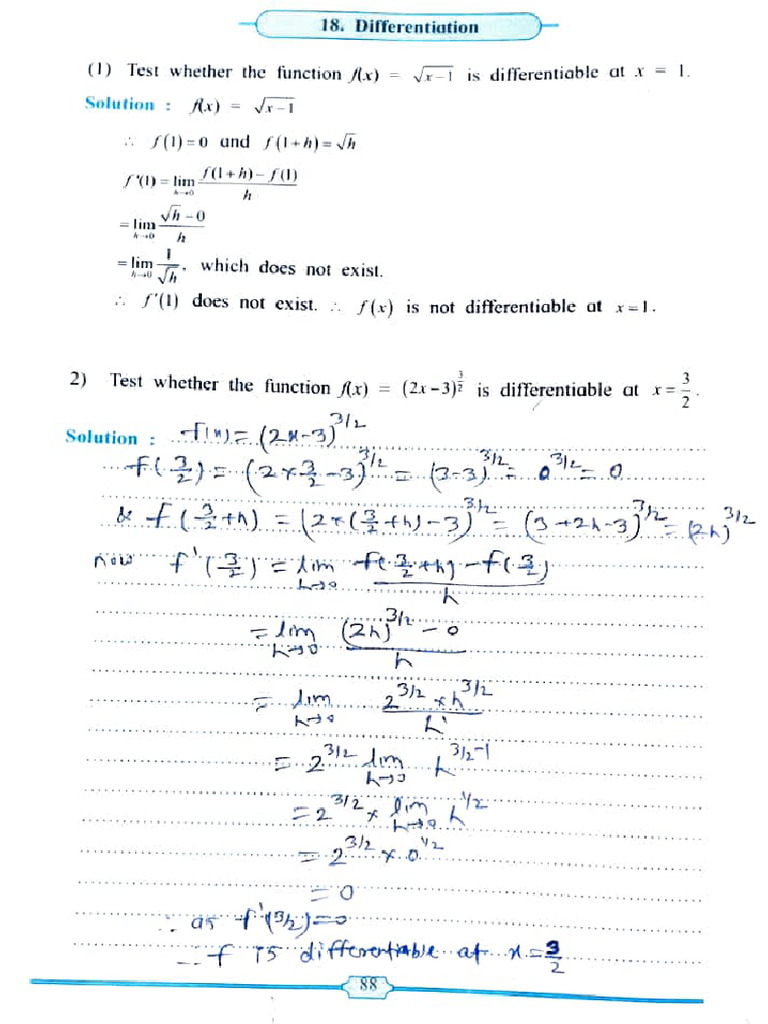 18. Differentiation
(1) Test whether the function f(x) = √x−1 is differentiable at x = 1.
Solution : f(x) = √x−1
∴ f(1)=0 and f(1+h)=√h
f'(1) = lim h→0 f(1+h)−f(1) / h
= lim h→0 √h −0 / h
= lim h→0 1/√h, which does not exist.
∴ f'(1) does not exist. ∴ f(x) is not differentiable at x=1.
2) Test whether the function f(x) = (2x−3)^3/2 is differentiable at x = 3/2.
Solution : f(x) = (2x-3)^3/2
f(3/2) = (2×3/2-3)^3/2 = (3-3)^3/2 = 0^3/2 = 0
& f(3/2+h) = (2×(3/2+h)-3)^3/2 = (3+2h-3)^3/2 = (2h)^3/2
now f'(3/2) = lim h→0 f(3/2+h) - f(3/2) / h
= lim h→0 (2h)^3/2 - 0 / h
= lim h→0 2^3/2 × h^3/2 / h'
= 2^3/2 lim h→0 h^3/2-1
= 2^3/2 × lim h→0 h^1/2
= 2^3/2 × 0^1/2
= 0
∴ as f'(3/2)=0
∴ f is differentiable at x = 3/2
88